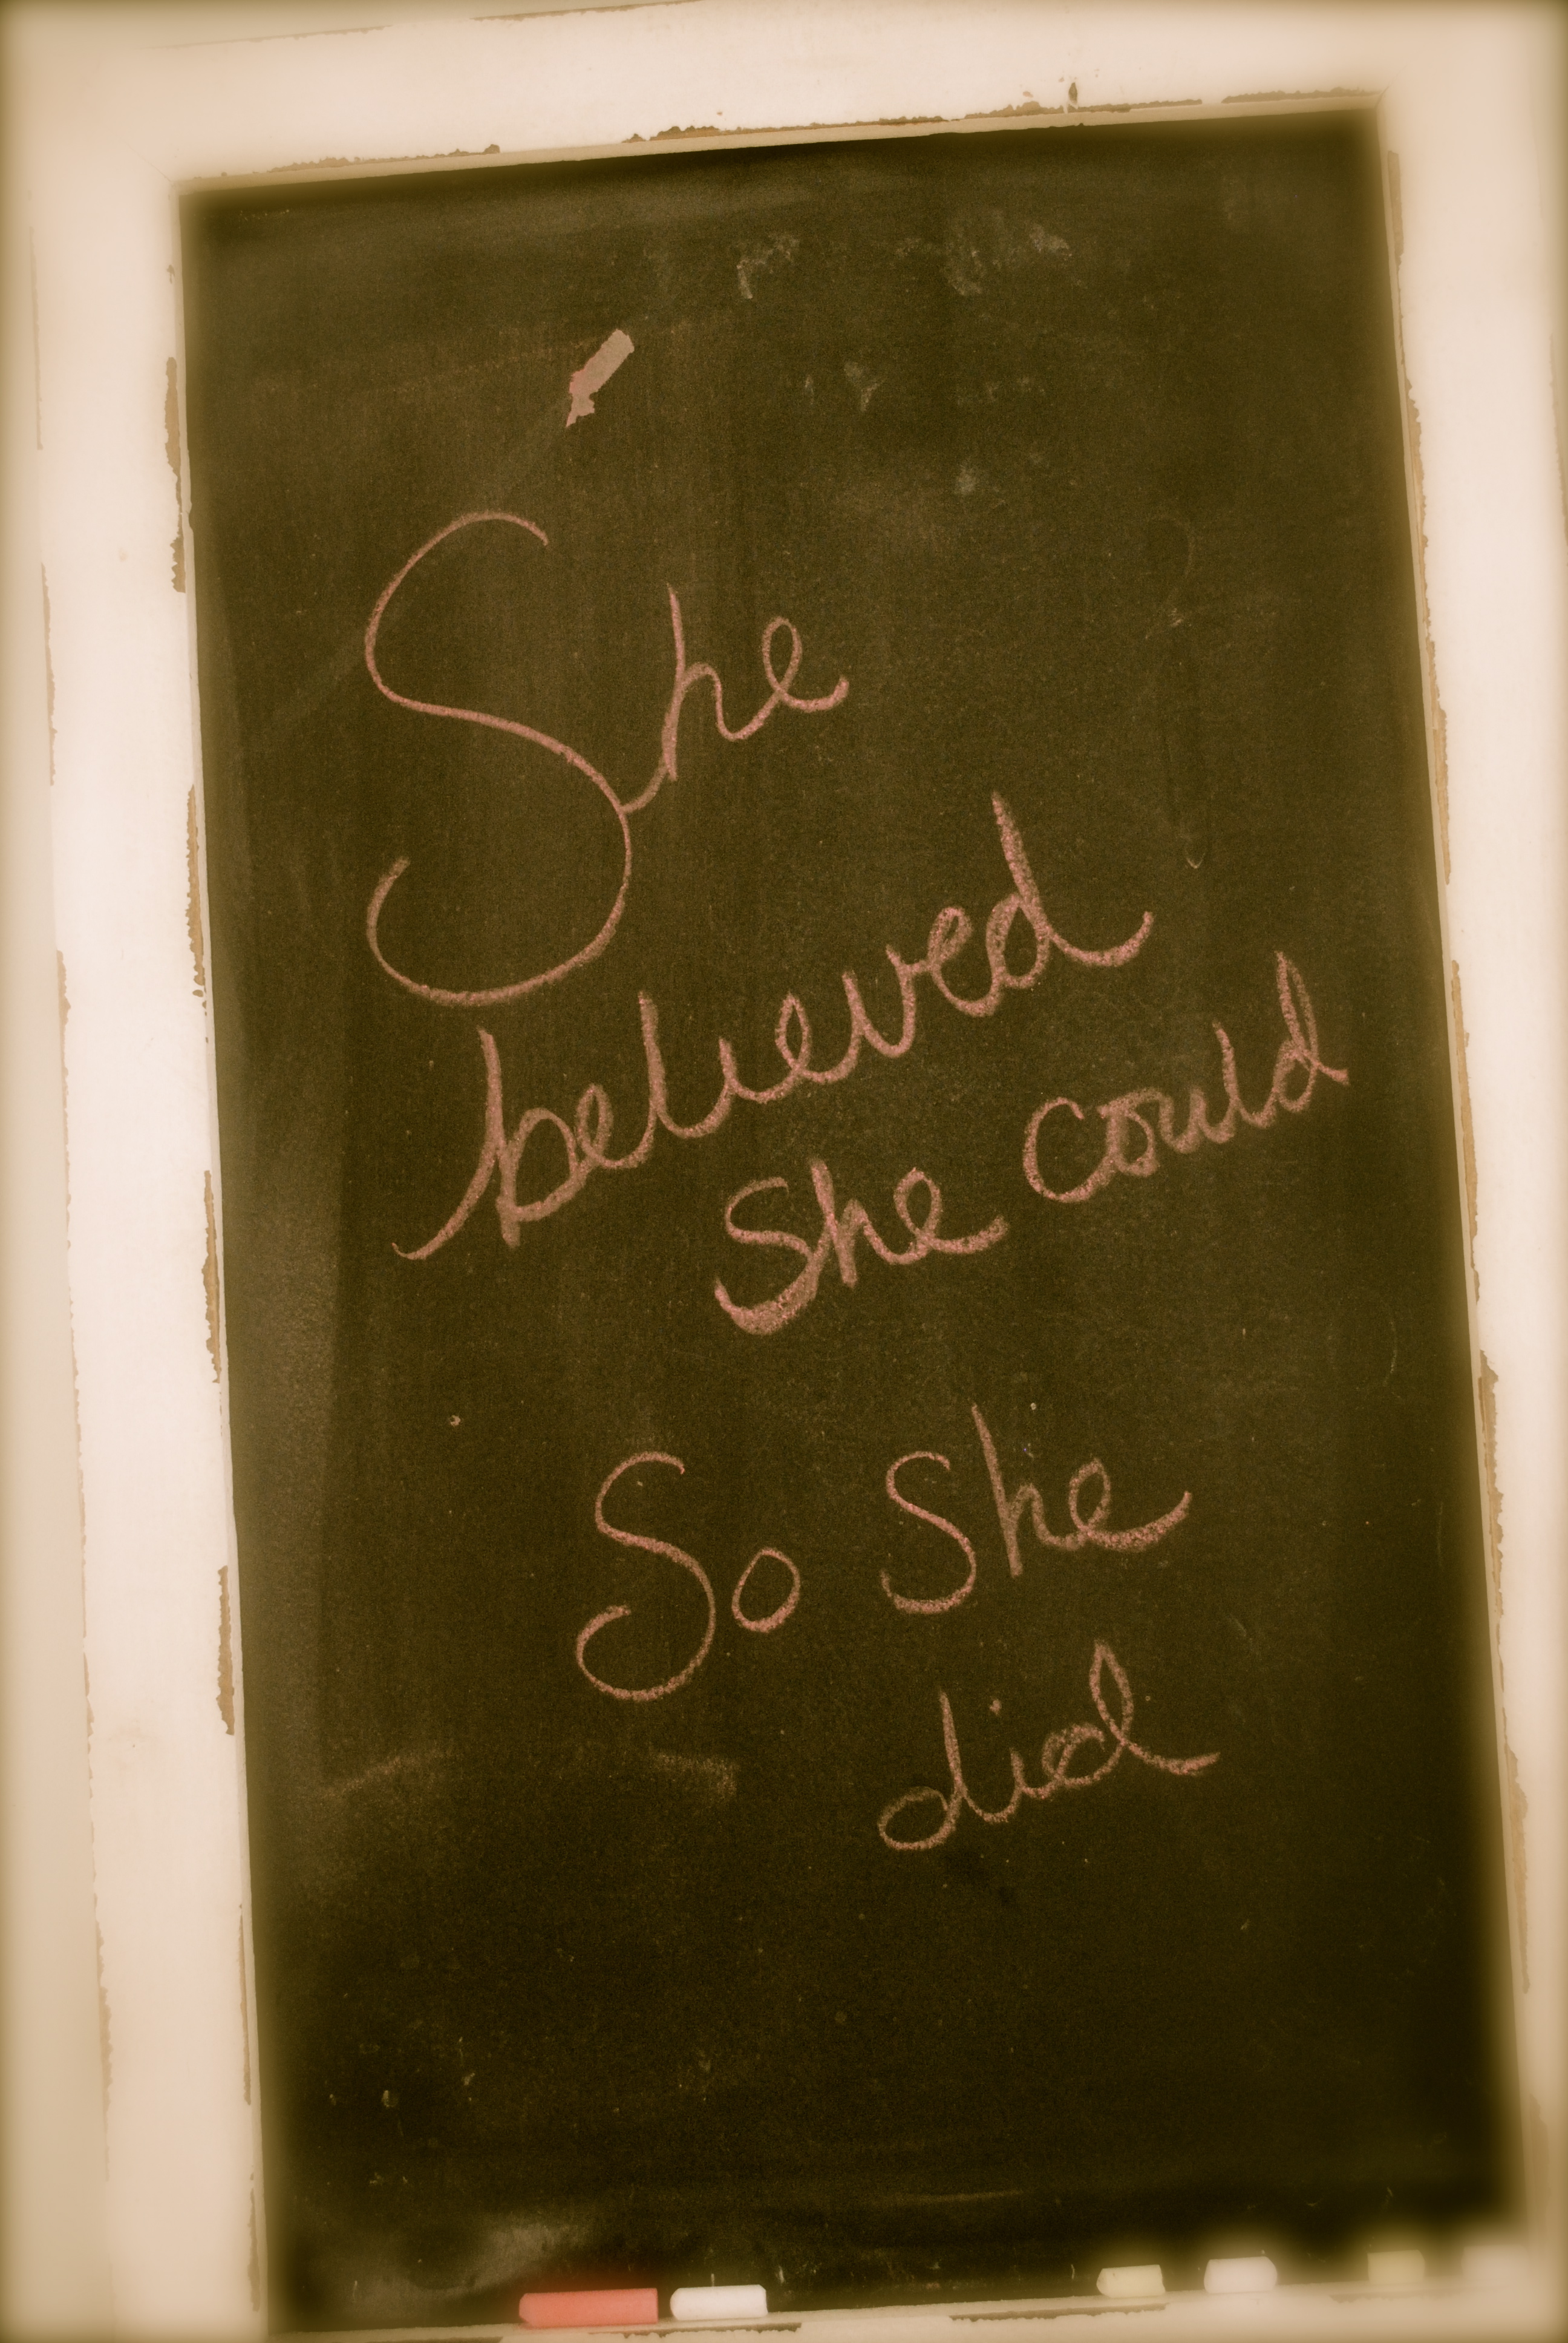 She
believed
she could
So She
did